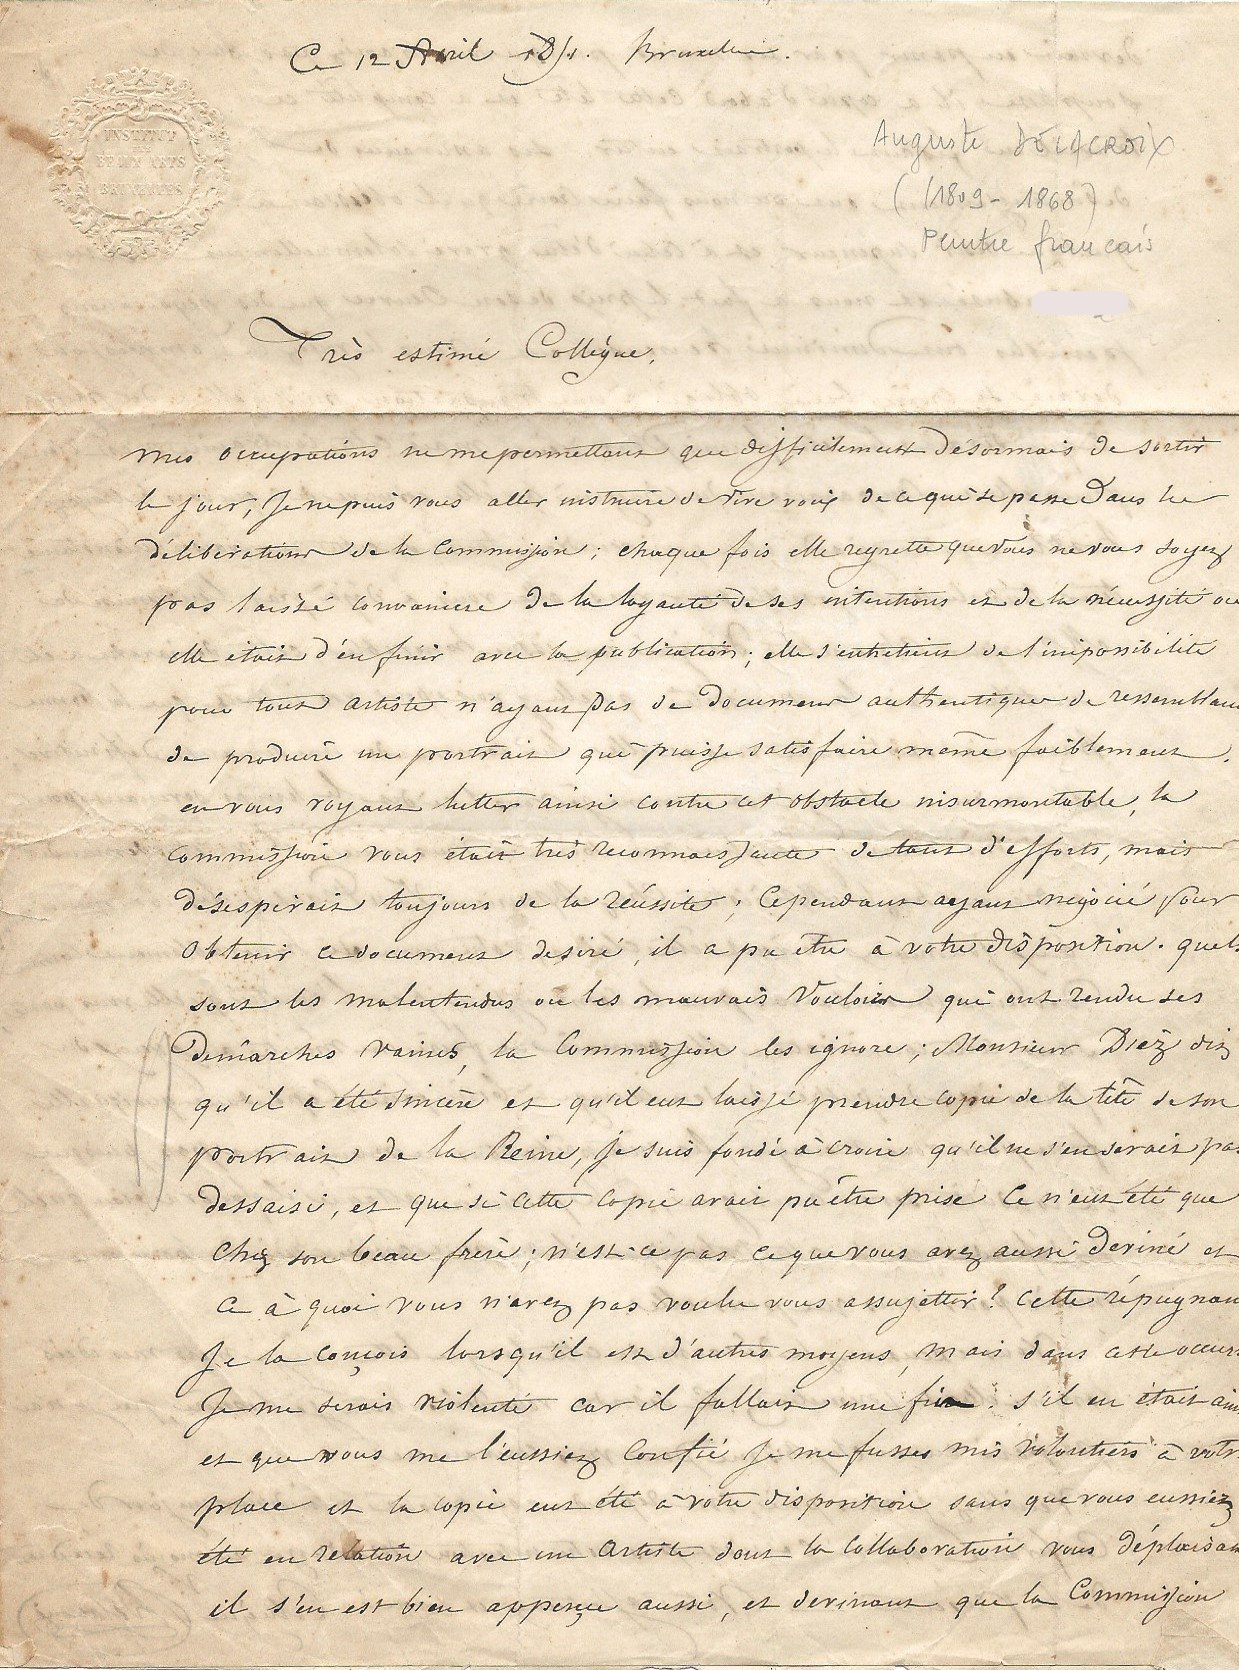 Ce 12 Avril 1851. Bruxelles.
INSTITUT
DES
BEAUX ARTS
BRUXELLES
Auguste DELACROIX
(1809 - 1868)
Peintre français
Très estimé Collègue,
mes occupations ne me permettant que difficilement désormais de sortir
le jour, Je ne puis vous aller instruire de vive voix de ce qui se passe dans les
délibérations de la Commission ; chaque fois elle regrette que vous ne vous soyez
pas laissé convaincre de la loyauté de ses intentions et de la nécessité où
elle était d'en finir avec la publication ; elle s'entretient de l'impossibilité
pour tout artiste n'ayant pas de document authentique de ressemblan
de produire un portrait qui puisse satisfaire même faiblement.
en vous voyant lutter ainsi contre cet obstacle insurmontable, la
Commission vous était très reconnaissante de tant d'efforts, mais
désespérait toujours de la réussite ; Cependant ayant négocié pour
Obtenir ce document desiré, il a pu être à votre disposition. quels
sont les malentendus ou les mauvais vouloirs qui ont rendu ses
demarches vaines, la Commission les ignore ; Monsieur Diéz dis
qu'il a été sincère et qu'il eut laissé prendre copie de la tête de son
portrait de la Reine, Je suis fondé à croire qu'il ne s'en serait pas
dessaisi, et que si cette copie avait pu être prise Ce n'eut été que
Chez son beau frère ; n'est-ce pas ce que vous avez aussi deviné et
Ce à quoi vous n'avez pas voulu vous assujettir ? Cette répugnan
Je la conçois lorsqu'il est d'autres moyens, mais dans cette occurr
Je me serais violenté car il fallait une fin. s'il en était ains
et que vous me l'eussiez Confié Je me fusses mis volontiers à votr
place et la copie eut été à votre disposition sans que vous eussiez
été en relation avec un Artiste dont la Collaboration vous déplaisai
il s'en est bien apperçu aussi, et devinant que la Commission